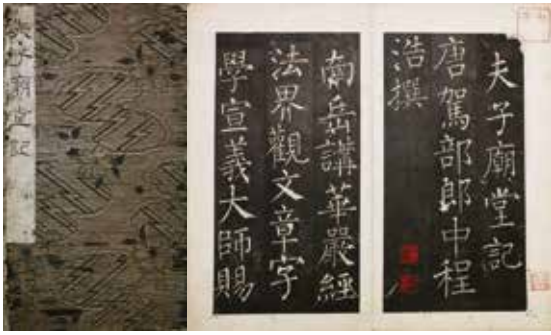 夫子廟堂記
夫子廟堂記
唐駕部郎中程
浩撰
南岳講華嚴經
法界觀文章字
學宣義大師賜